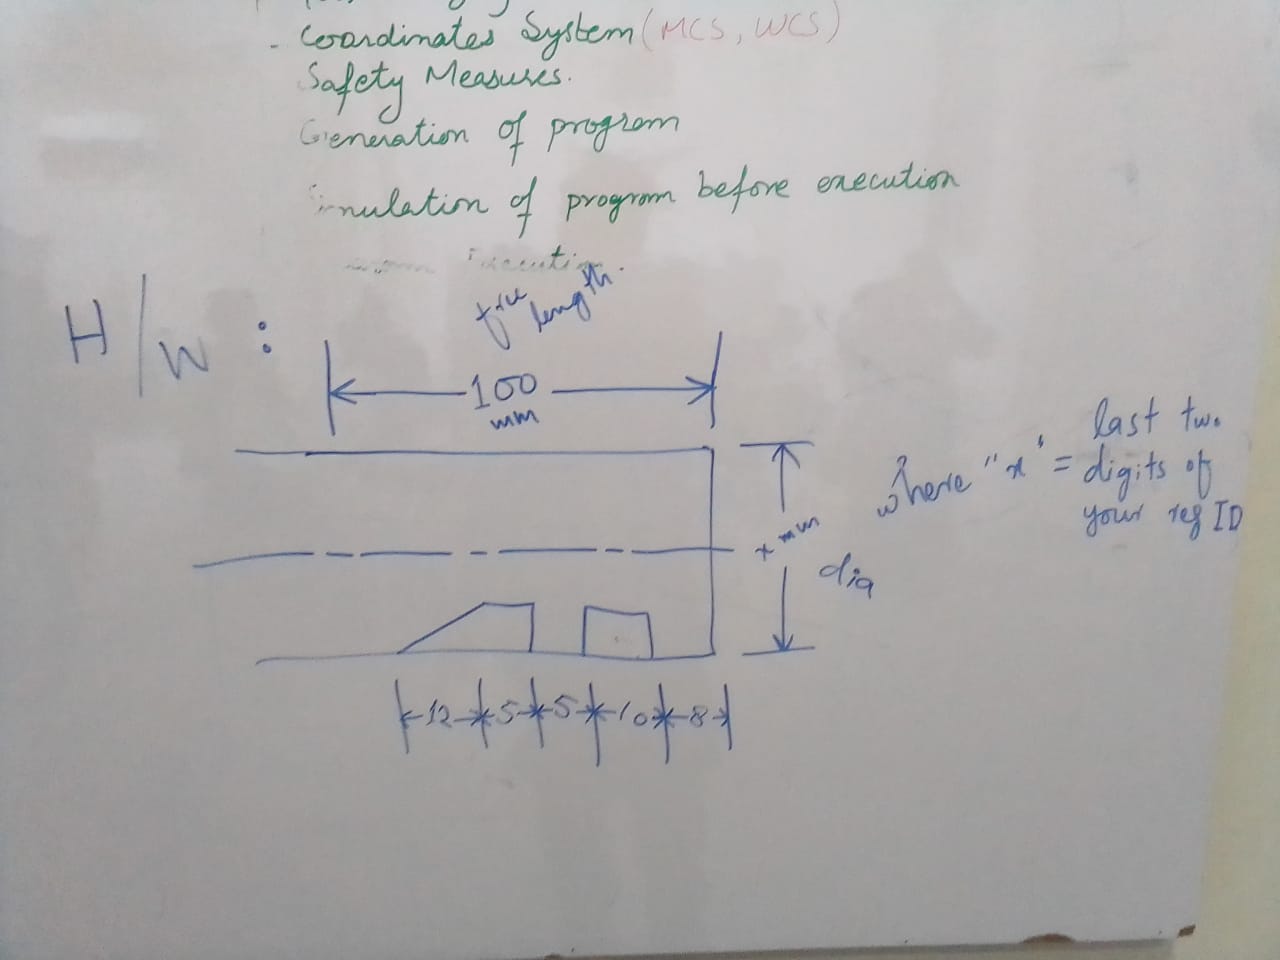 - Coordinates System (MCS, WCS)
Safety Measures.
Generation of program
Simulation of program before execution
Execution
H/W :
free length.
100
mm
x mm
dia
where "x" = last two
digits of
your reg ID
12 5 5 10 8